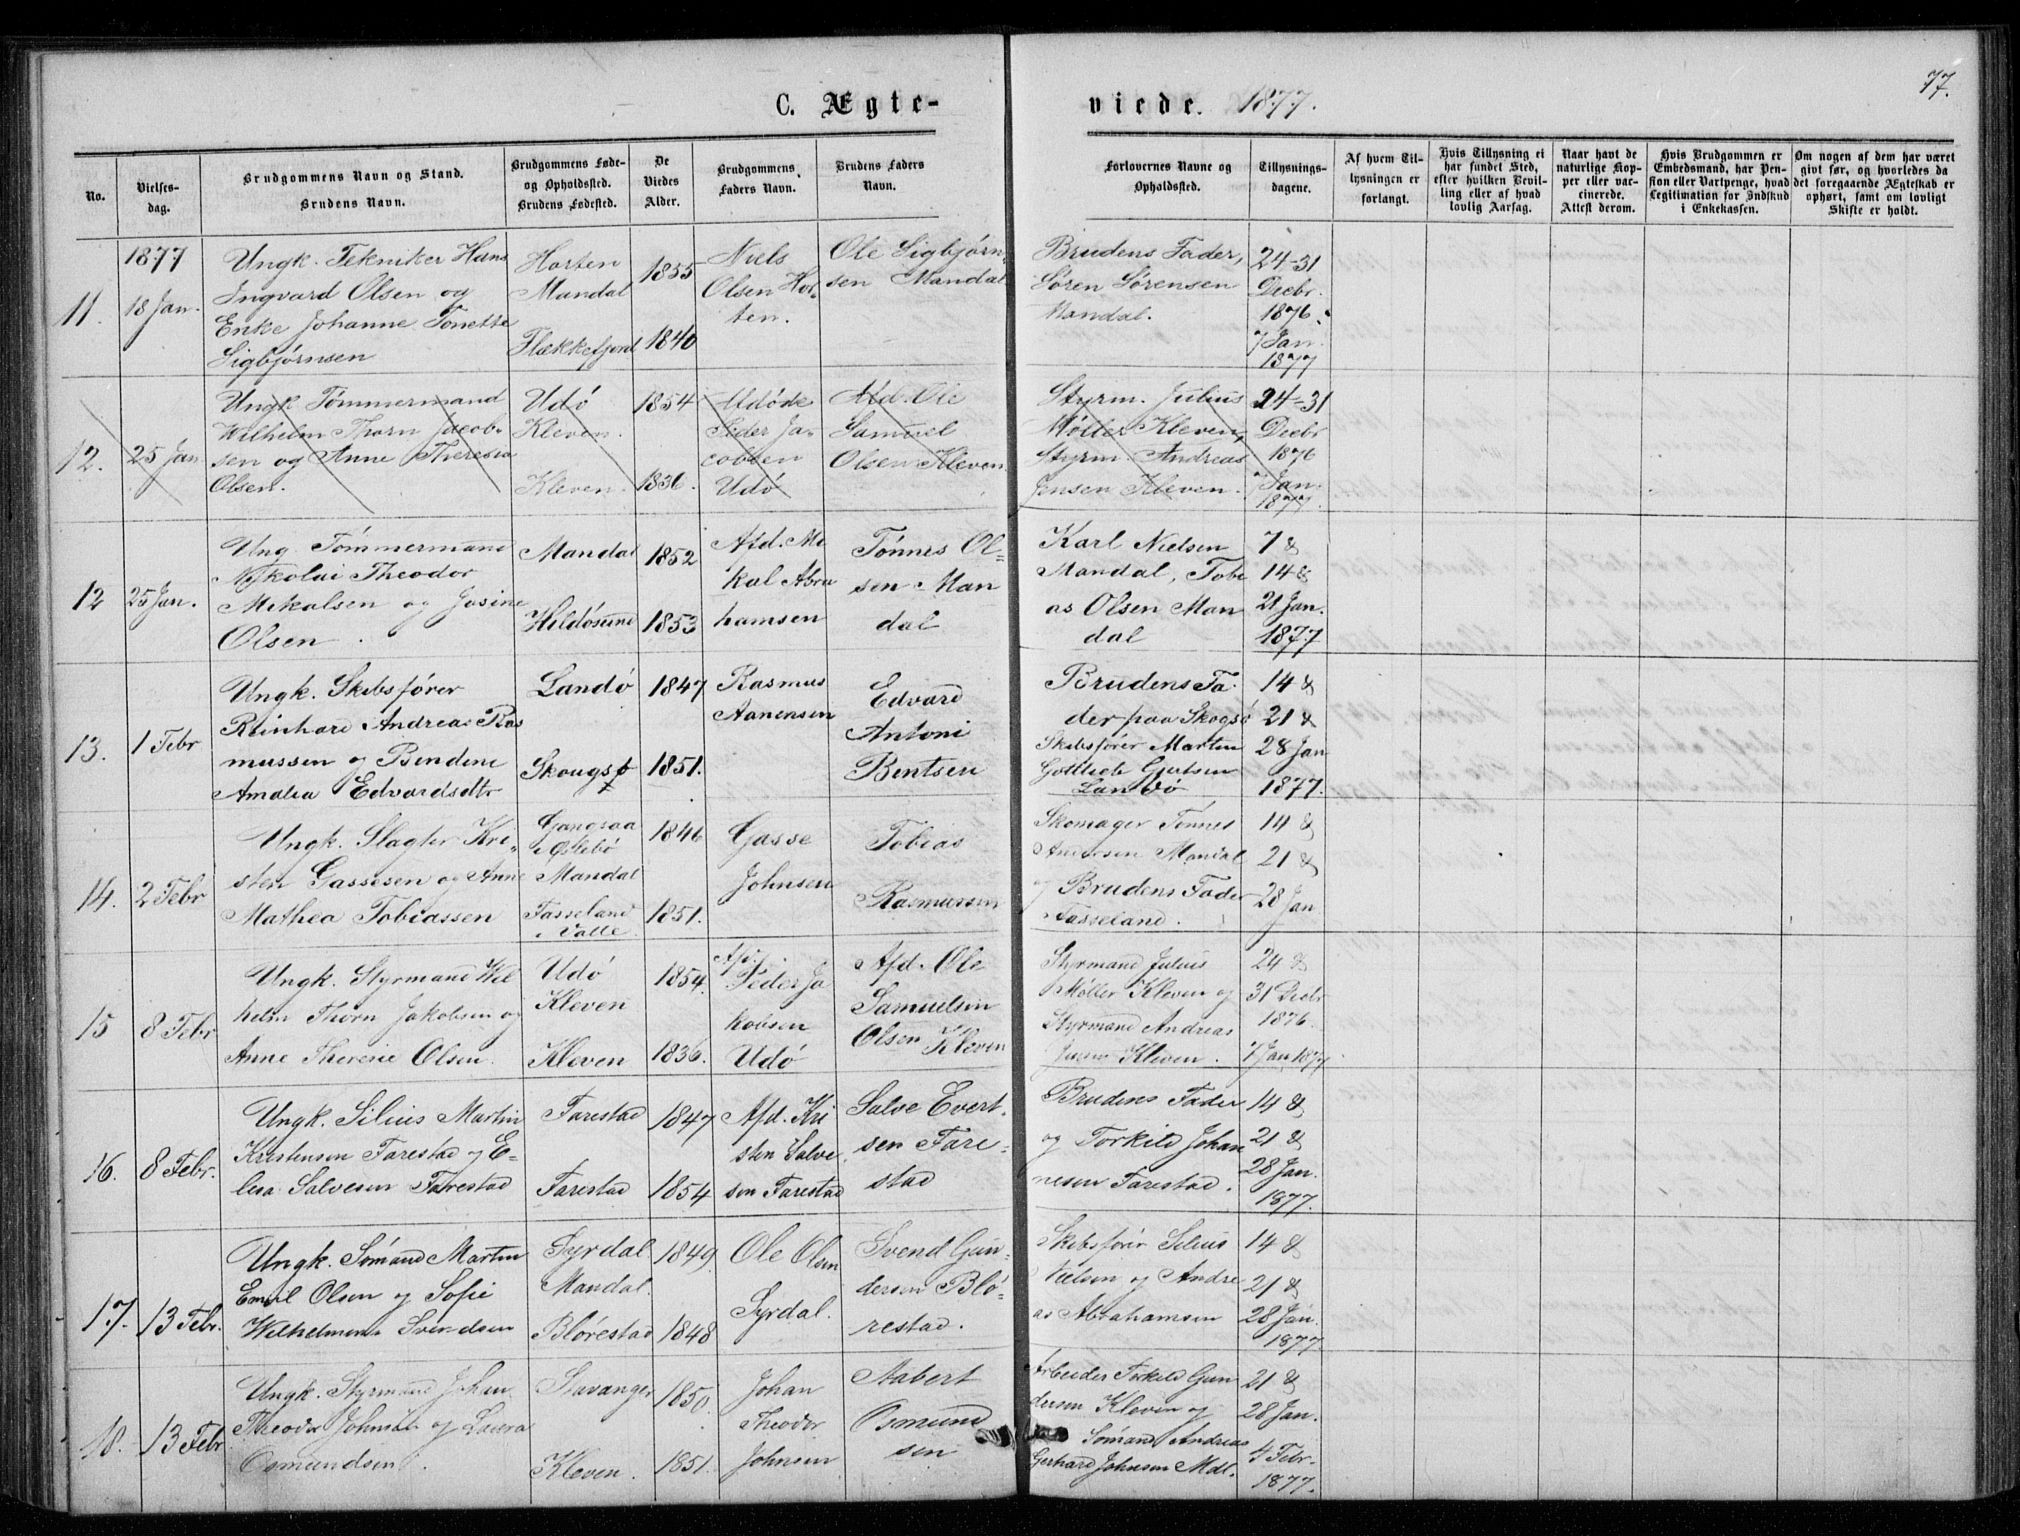 77.
C. Ægte-
viede. 1877.
No.
Vielses-
dag.
Brudgommens Navn og Stand.
Brudens Navn.
Brudgommens Føde-
og Opholdssted.
Brudens Fødested.
De
Viedes
Alder.
Brudgommens
Faders Navn.
Brudens Faders
Navn.
Forlovernes Navne og
Opholdssted.
Tillysnings-
dagene.
Af hvem Til-
lysningen er
forlangt.
Hvis Tillysning ei
har fundet Sted,
efter hvilken Bevil-
ling eller af hvad
lovlig Aarsag.
Naar havt de
naturlige Kop-
per eller vac-
cinerede.
Attest derom.
Hvis Brudgommen er
Embedsmand, har Pen-
sion eller Vartpenge, hvad
Legitimation for Indskud
i Enkekassen.
Om nogen af dem har været
gift før, og hvorledes da
det foregaaende Ægteskab er
ophørt, samt om lovligt
Skifte er holdt.
11.
1877
18 Jan.
Ungk. Tekniker Hans
Ingvard Olsen og
Enke Johanne Tonette
Sigbjørnsen
Horten
Mandal
Flækkefjord
1855
1840
Niels
Olsen Hor-
ten.
Ole Sigbjørn-
sen Mandal
Brudens Fader,
Søren Sørensen
Mandal.
24-31
Decbr.
1876.
7 Jan.
1877
12.
25 Jan
Ungk Tømmermand
Wilhelm Thorn Jacob-
sen og Anne Theresia
Olsen.
Udö
Kleven.
Kleven.
1854
1836.
Peder Ja-
cobsen
Udö
Afd. Ole
Samuel
Olsen Kleven.
Styrm. Julius
Møller Kleven,
Styrm. Andreas
Jensen Kleven.
24-31
Decbr
1876
7 Jan.
1877.
12
25 Jan.
Ung. Tømmermand
Nikolai Theodor
Mekalsen og Josine
Olsen.
Mandal
Hildösund
1852
1853
Afd. Me
kal Abra
hamsen
Tönnes Ol-
sen Man
dal
Karl Nielsen
Mandal, Tobi
as Olsen Man
dal
7 &
14 &
21 Jan.
1877
13.
1 Febr
Ungk. Skibsfører
Reinhard Andreas Ras
mussen og Bendine
Amalia Edvardsdtr
Landö
Skougsø
1847
1851.
Rasmus
Aanensen
Edvard
Antoni
Bentsen
Brudens Fa-
der paa Skogsö
Skibsfører Martin
Gottlieb Gjertsen
Landö
14 &
21 &
28 Jan
1877.
14.
2 Febr
Ungk. Slagter Kri-
sten Gassesen og Anne
Mathea Tobiassen
Gangsaa
i Öslebö
Mandal
Fasseland
i Valle.
1846
1851.
Gasse
Johnsen
Tobias
Rasmussen
Skomager Tönnes
Andersen Mandal
og Brudens Fader
Fasseland.
14 &
21 &
28 Jan
15
8 Febr
Ungk. Styrmand Wil
helm Thorn Jakobsen og
Anne Theresie Olsen.
Udö
Kleven
Kleven
1854.
1836.
Afd.
Peder Ja
kobsen
Udö
Afd. Ole
Samuelsen
Olsen Kleven
Styrmand Julius
Møller Kleven og
Styrmand Andreas
Jensen Kleven.
24 &
31 Decbr
1876.
7 Jan 1877
16.
8 Febr.
Ungk. Silius Martin
Kristensen Farestad og E-
lesa Salvesen Farestad
Farestad
Farestad
1847
1854
Afd. Kri
sten Salve
sen Farestad
Salve Evert-
sen Fare-
stad
Brudens Fader
og Torkild Johan
nesen Farestad.
14 &
21 &
28 Jan.
1877.
17.
13 Febr.
Ungk. Sömand Martin
Emil Olsen og Sofie
Wilhelmine Svendsen
Syrdal
Mandal.
Blörestad
1849.
1848
Ole Olsen
Syrdal.
Svend Gun-
dersen Blö-
restad.
Skibsfører Silius
Nielsen og Andre
as Abrahamsen
14 &
21 &
28 Jan.
1877.
18.
13 Febr
Ungk. Styrmand Johan
Theodor Johnsen og Laura
Osmundsen.
Stavanger
Kleven.
1850.
1851.
Johan
Theodor
Johnsen
Aabert
Osmund
sen
Arbeider Torkild Gun
dersen Kleven og
Sömand Andreas
Gerhard Johnsen Mdl.
21 &
28 Jan.
4 Febr.
1877.